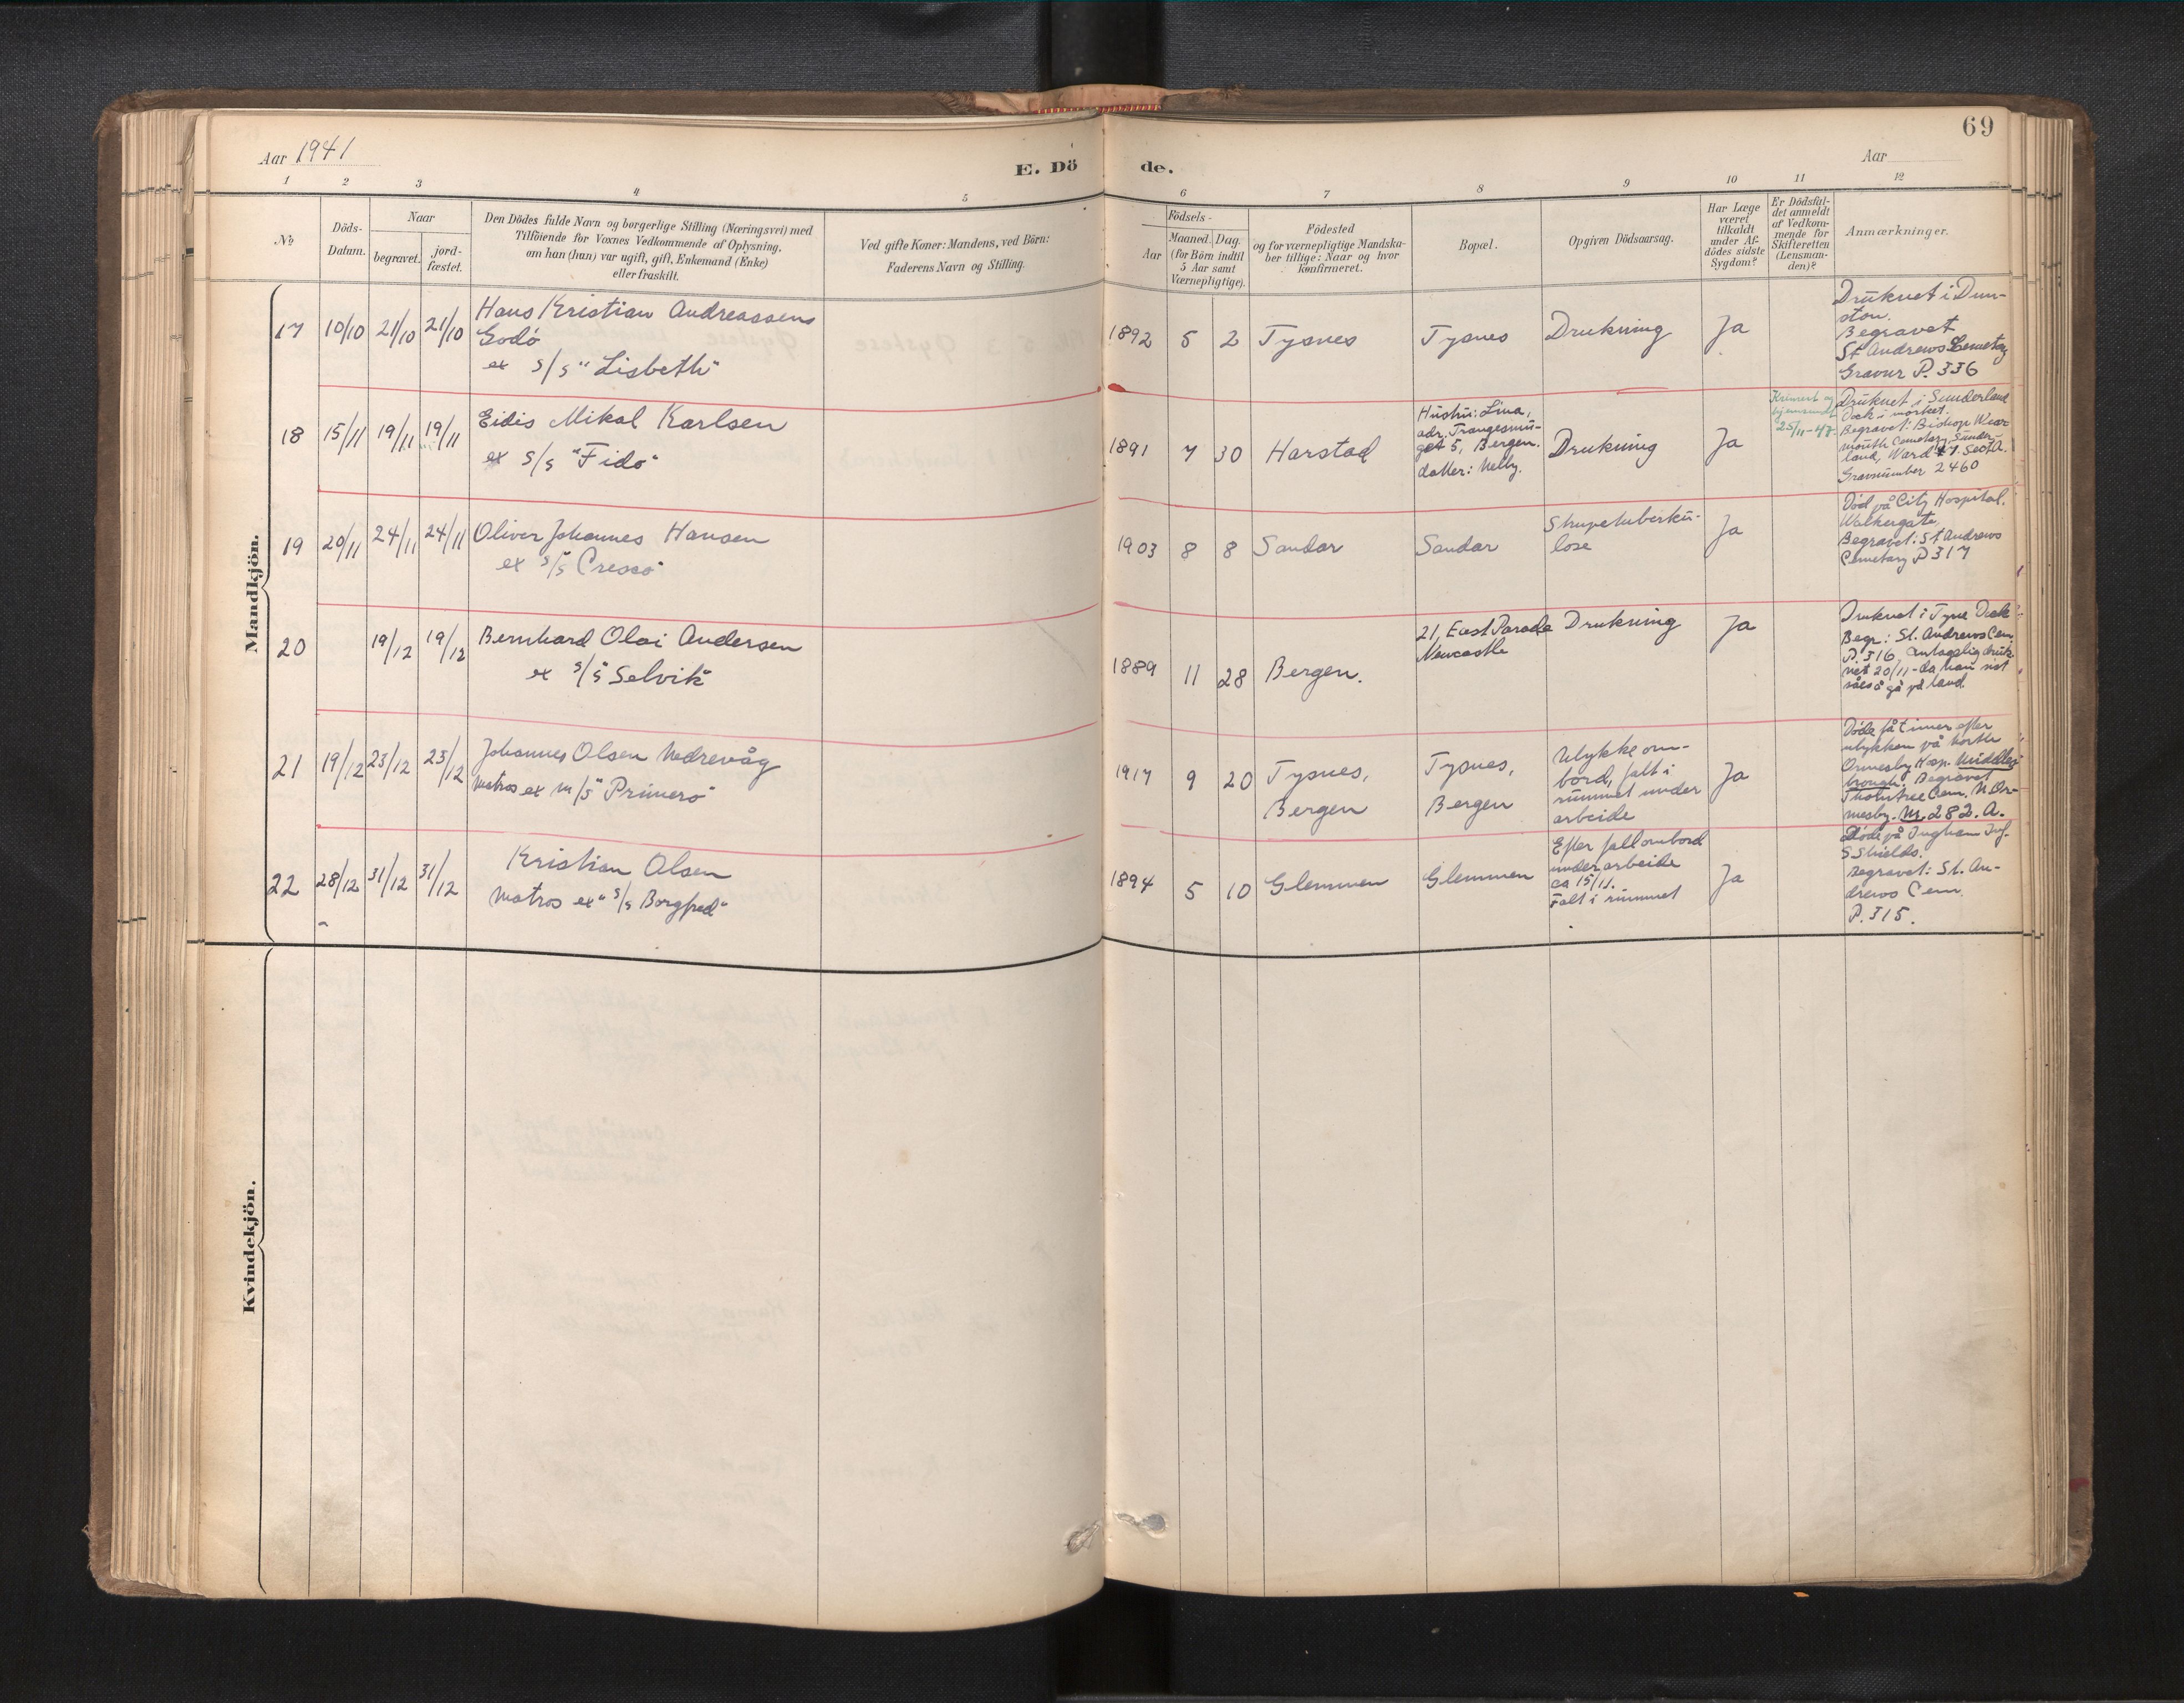 69
Aar 1941
E. Dö
de.
Aar
1 2 3 4 5 6 7 8 9 10 11 12
No
Döds-
Datum.
Naar
begravet.
jord-
fæstet.
Den Dödes fulde Navn og borgerlige Stilling (Næringsvei) med
Tilföiende for Voxnes Vedkommende af Oplysning,
om han (hun) var ugift, gift, Enkemand (Enke)
eller fraskilt.
Ved gifte Koner: Mandens, ved Börn:
Faderens Navn og Stilling.
Födsels-
Aar
Maaned.
Dag.
(for Börn indtil
5 Aar samt
Værnepligtige).
Födested
og for værnepligtige Mandska-
ber tillige: Naar og hvor
Konfirmeret.
Bopæl.
Opgiven Dödsaarsag.
Har Læge
været
tilkaldt
under Af-
dödes sidste
Sygdom?
Er Dödsfal-
det anmeldt
af Vedkom-
mende for
Skifteretten
(Lensman-
den)?
Anmærkninger.
Mandkjön.
17 10/10 21/10 21/10
Hans Kristian Andreassen
Godö
ex s/s "Lisbeth"
1892 5 2 Tysnes Tysnes Drukning Ja
Druknet i Dun-
ston.
Begravet
St Andrews Cemetery
Gravnr P. 336
18 15/11 19/11 19/11
Eidis Mikal Karlsen
ex s/s "Fido"
1891 7 30 Harstad
Hustru: Lina,
adr.
5, Bergen.
datter: Nelly.
Drukning Ja
Kremert og
hjemsendt
25/11-47
Druknet i Sunderland
Dock i mörket.
Begravet: Bishop Wear
mouth Cemetery, Sunder-
land, Ward 17. Sect A.
Gravnummer 2460
19 20/11 24/11 24/11
Oliver Johannes Hansen
ex s/s "Cresco"
1903 8 8 Sandar Sandar
Strupetuberku-
lose
Ja
Död på City Hospital.
Walkergate.
Begravet: St Andrews
Cemetary P 317
20 19/12 19/12
Bernhard Olai Andersen
ex s/s "Selvik"
1889 11 28 Bergen.
21, East Parade
Newcastle
Drukning Ja
Druknet i Tyne Dock
Begr: St. Andrews Cem.
P. 316, antagelig druk-
net 20/11 - da han sist
såes å gå på land.
21 19/12 23/12 23/12
Johannes Olsen Nedrevåg
Matros ex m/s "Primero"
1917 9 20
Tysnes,
Bergen
Tysnes,
Bergen
Ulykke om-
bord, falt i
rummet under
arbeide
Ja
Döde få timer efter
ulykken på North
Ormesby Hosp. Middles-
brough. Begravet
Thorntree Cem. N. Or-
mesby. Nr. 282. A.
22 28/12 31/12 31/12
Kristian Olsen
Matros ex "s/s Borgfred"
1894 5 10 Glemmen Glemmen
Efter fall ombord
under arbeide
ca 15/11.
Falt i rummet
Ja
Döde på Ingham Inf.
S Shields.
Begravet: St. An-
drews Cem.
P. 315.
Kvindekjön.